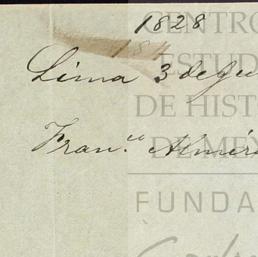 1828
184
Lima 3 de Ju
Fran.co Almir
CENTRO
ESTUD
DE HIST
DE MÉX
FUNDA